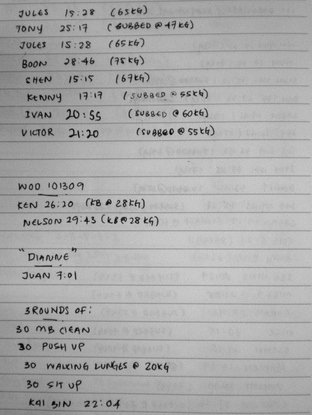 JULES 15:28 (65KG)
TONY 25:17 (SUBBED @ 47KG)
JULES 15:28 (65KG)
BOON 28:46 (75KG)
SHEN 15:15 (67KG)
KENNY 17:17 (SUBBED @ 55KG)
IVAN 20:55 (SUBBED @ 60KG)
VICTOR 21:20 (SUBBED @ 55KG)
WOD 101309
KEN 26:20 (KB @ 28KG)
NELSON 29:43 (KB @ 28KG)
"DIANNE"
JUAN 7:01
3 ROUNDS OF:
30 MB CLEAN
30 PUSH UP
30 WALKING LUNGES @ 20KG
30 SIT UP
KAI BIN 22:04